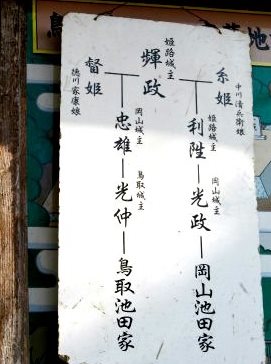 中川清兵衛娘
糸姫
姫路城主
岡山城主
利陞―光政―岡山池田家
姫路城主
輝政
岡山城主
鳥取城主
忠雄―光仲―鳥取池田家
督姫
徳川家康娘